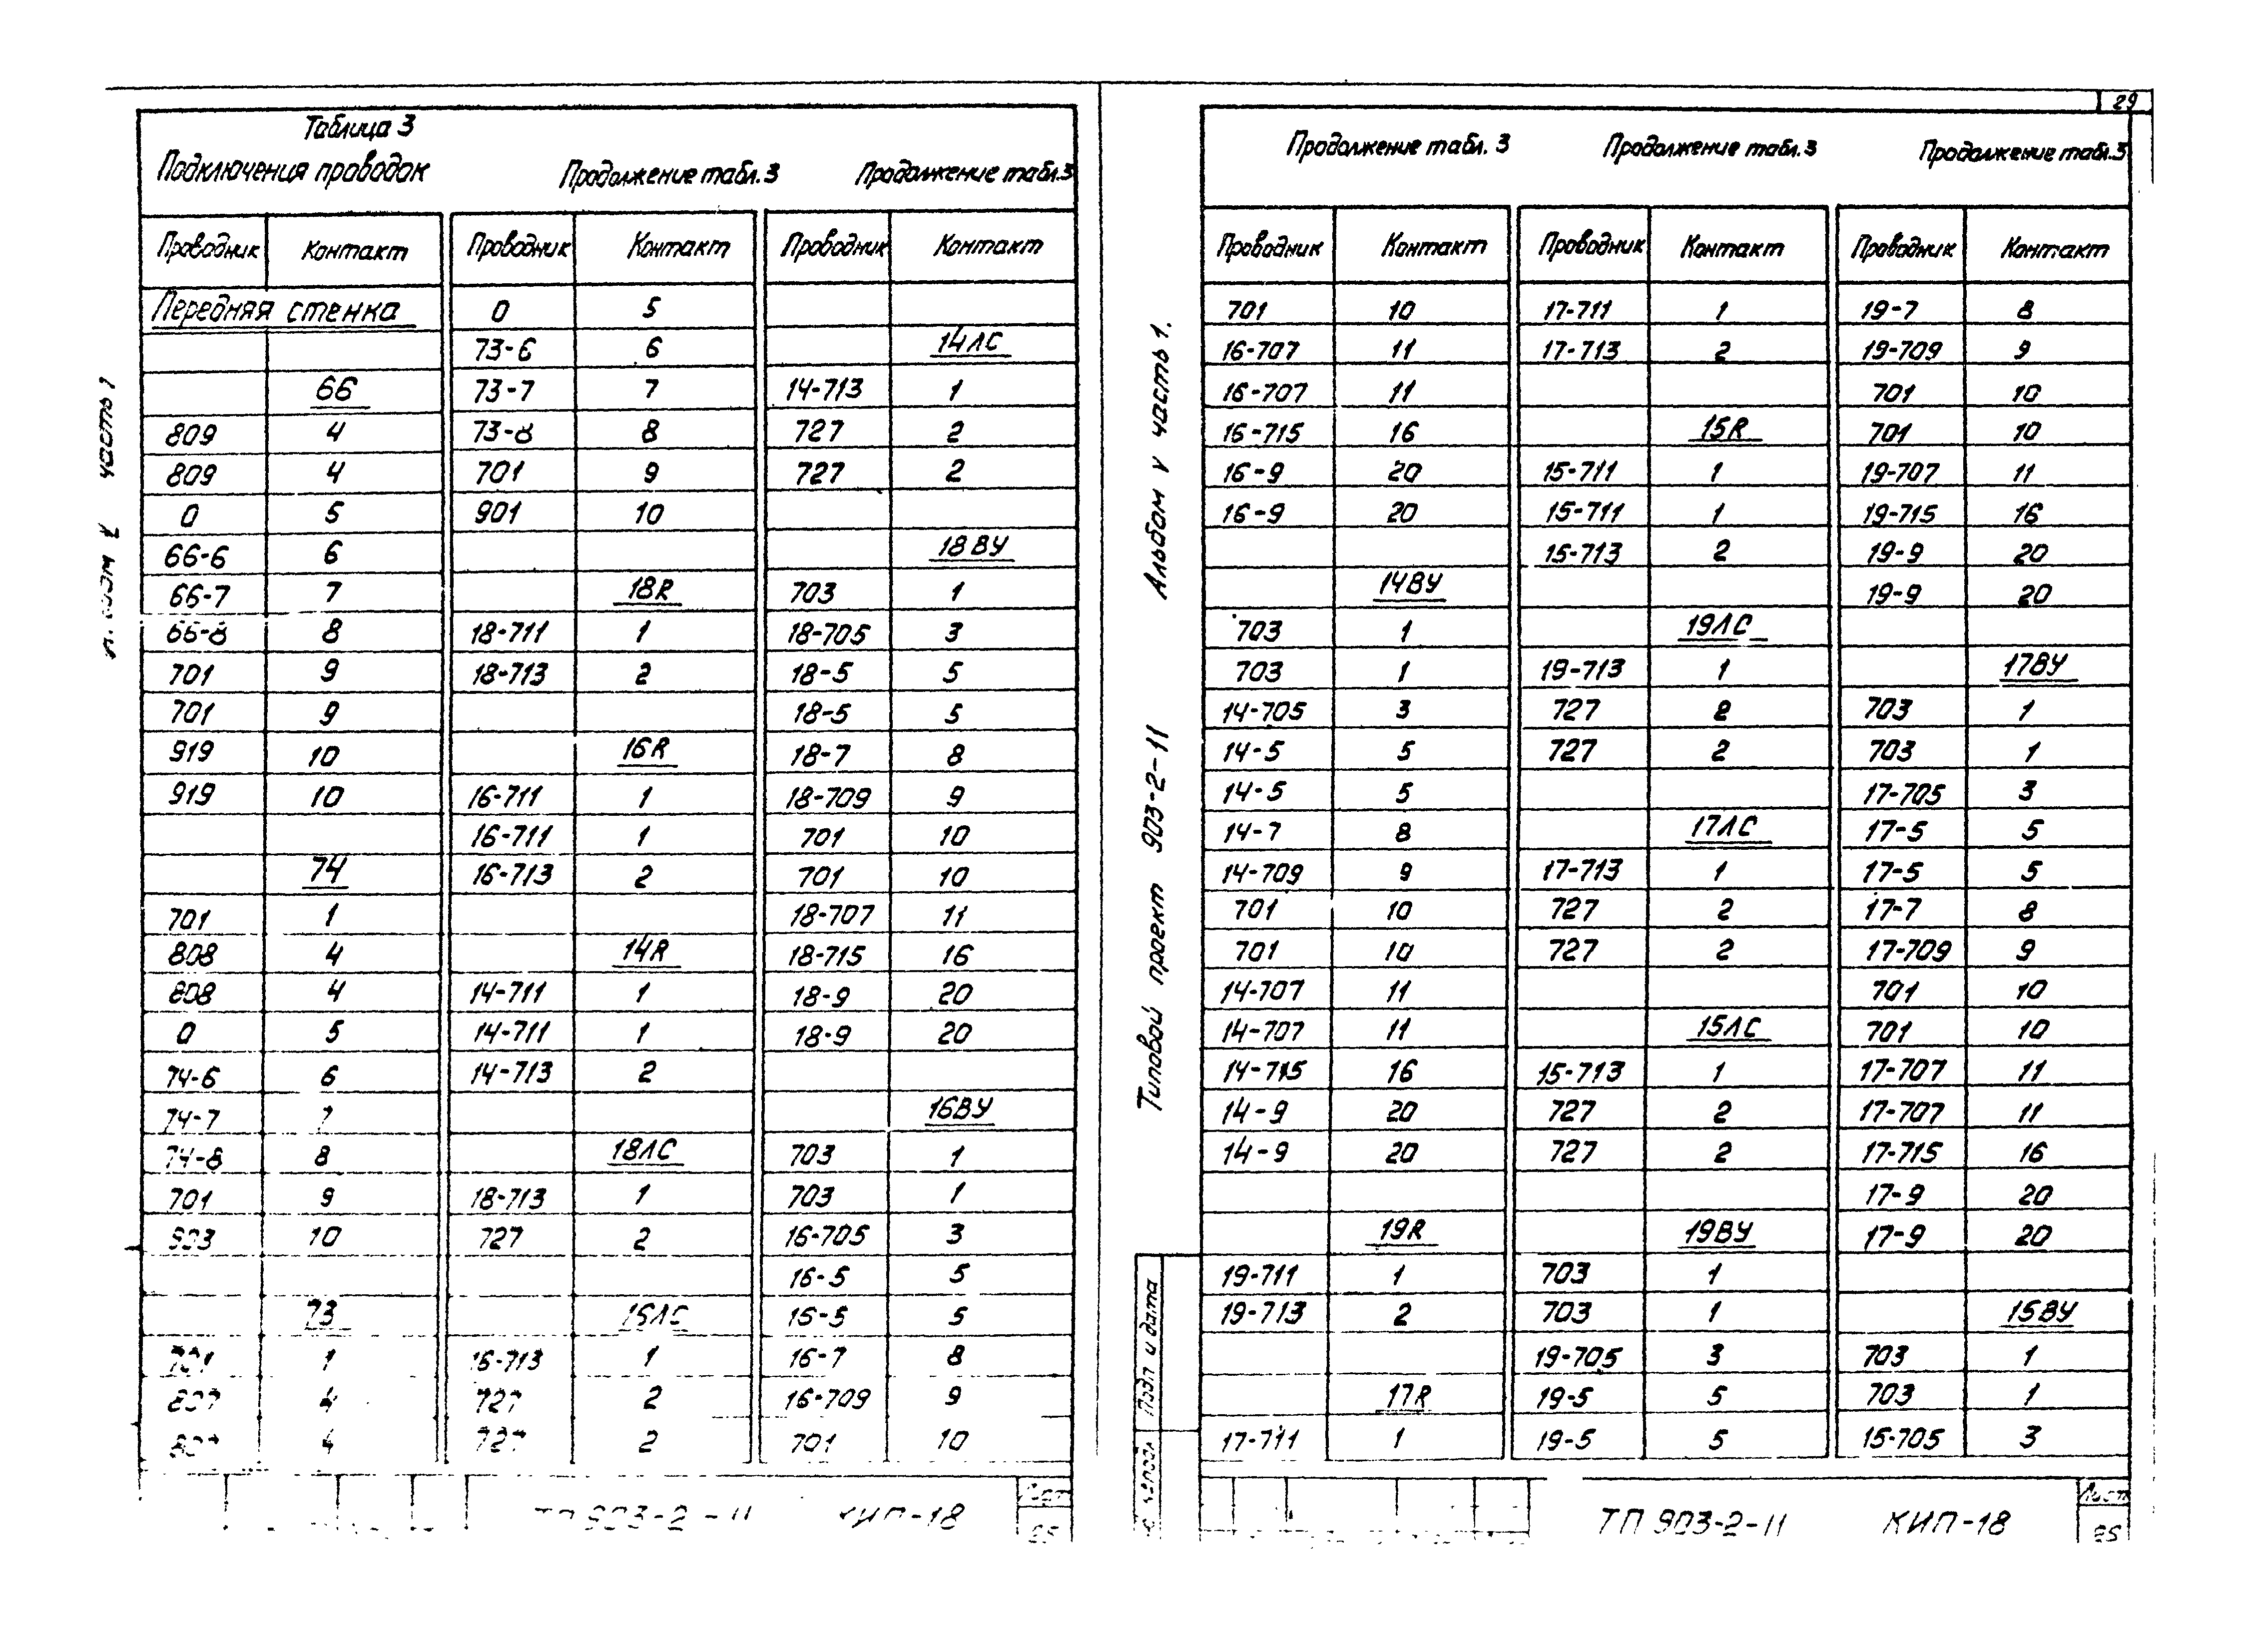 29
Таблица 3
Подключения проводок
Продолжение табл. 3
Продолжение табл.3
Проводник Контакт Проводник Контакт Проводник Контакт
Передняя стенка 0 5
73-6 6 14ЛС
66 73-7 7 14-713 1
809 4 73-8 8 727 2
809 4 701 9 727 2
0 5 901 10
66-6 6 18ВУ
66-7 7 18R 703 1
66-8 8 18-711 1 18-705 3
701 9 18-713 2 18-5 5
701 9 18-5 5
919 10 16R 18-7 8
919 10 16-711 1 18-709 9
16-711 1 701 10
74 16-713 2 701 10
701 1 18-707 11
808 4 14R 18-715 16
808 4 14-711 1 18-9 20
0 5 14-711 1 18-9 20
74-6 6 14-713 2
74-7 7 16ВУ
74-8 8 18ЛС 703 1
701 9 18-713 1 703 1
903 10 727 2 16-705 3
16-5 5
73 16ЛС 16-5 5
701 1 16-713 1 16-7 8
807 4 727 2 16-709 9
807 4 727 2 701 10
ТП 903-2-11 КИП-18
Лист
часть 1
Продолжение табл. 3
Продолжение табл.3
Продолжение табл.3
Проводник Контакт Проводник Контакт Проводник Контакт
701 10 17-711 1 19-7 8
16-707 11 17-713 2 19-709 9
16-707 11 701 10
16-715 16 15R 701 10
16-9 20 15-711 1 19-707 11
16-9 20 15-711 1 19-715 16
15-713 2 19-9 20
14ВУ 19-9 20
703 1 19ЛС
703 1 19-713 1 17ВУ
14-705 3 727 2 703 1
14-5 5 727 2 703 1
14-5 5 17-705 3
14-7 8 17ЛС 17-5 5
14-709 9 17-713 1 17-5 5
701 10 727 2 17-7 8
701 10 727 2 17-709 9
14-707 11 701 10
14-707 11 15ЛС 701 10
14-715 16 15-713 1 17-707 11
14-9 20 727 2 17-707 11
14-9 20 727 2 17-715 16
17-9 20
19R 19ВУ 17-9 20
19-711 1 703 1
19-713 2 703 1 15ВУ
19-705 3 703 1
17R 19-5 5 703 1
17-711 1 19-5 5 15-705 3
ТП 903-2-11 КИП-18
Лист
Типовой проект 903-2-11 Альбом V часть 1.
Подп и дата